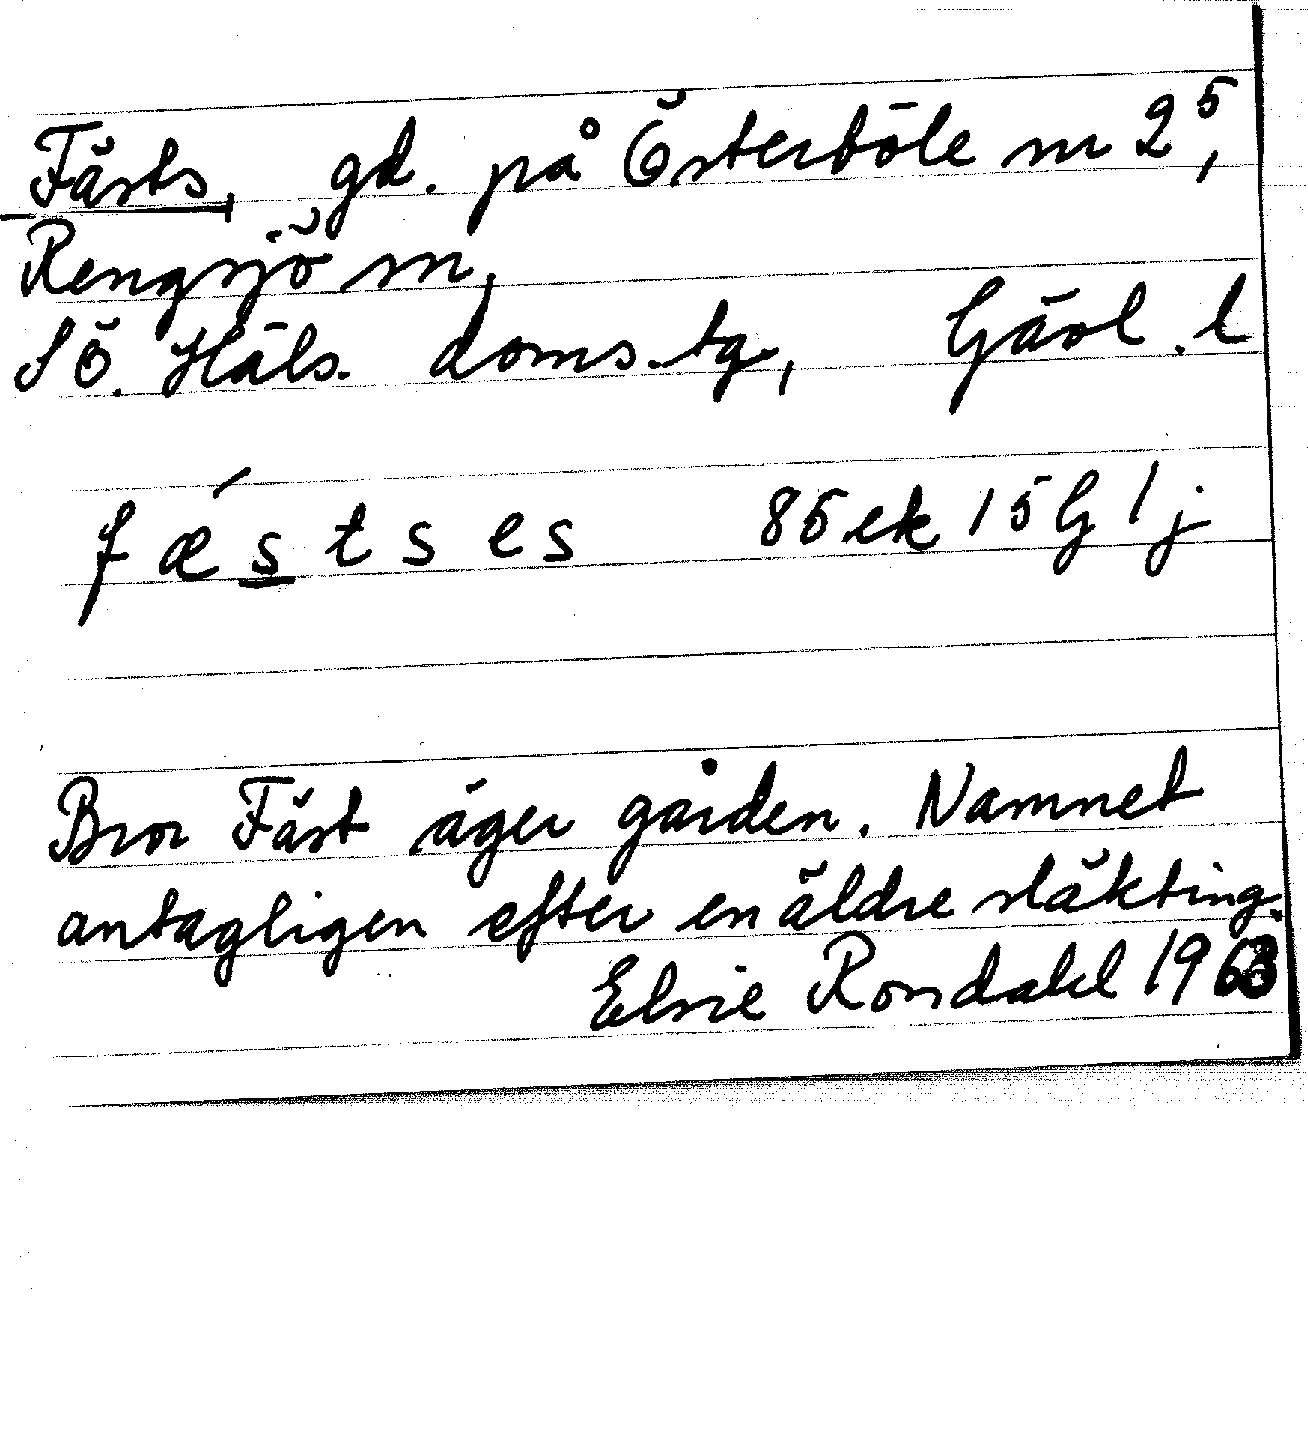 Fästs, gd. på Österböle nr 2⁵,
Rengsjö sn,
SÖ. Häls. doms.-tg, Gävl. l
fǽstses 85 ek 15 G 1 j
Bror Fäst äger gården. Namnet
antagligen efter en äldre släkting.
Elsie Romdahl 1963